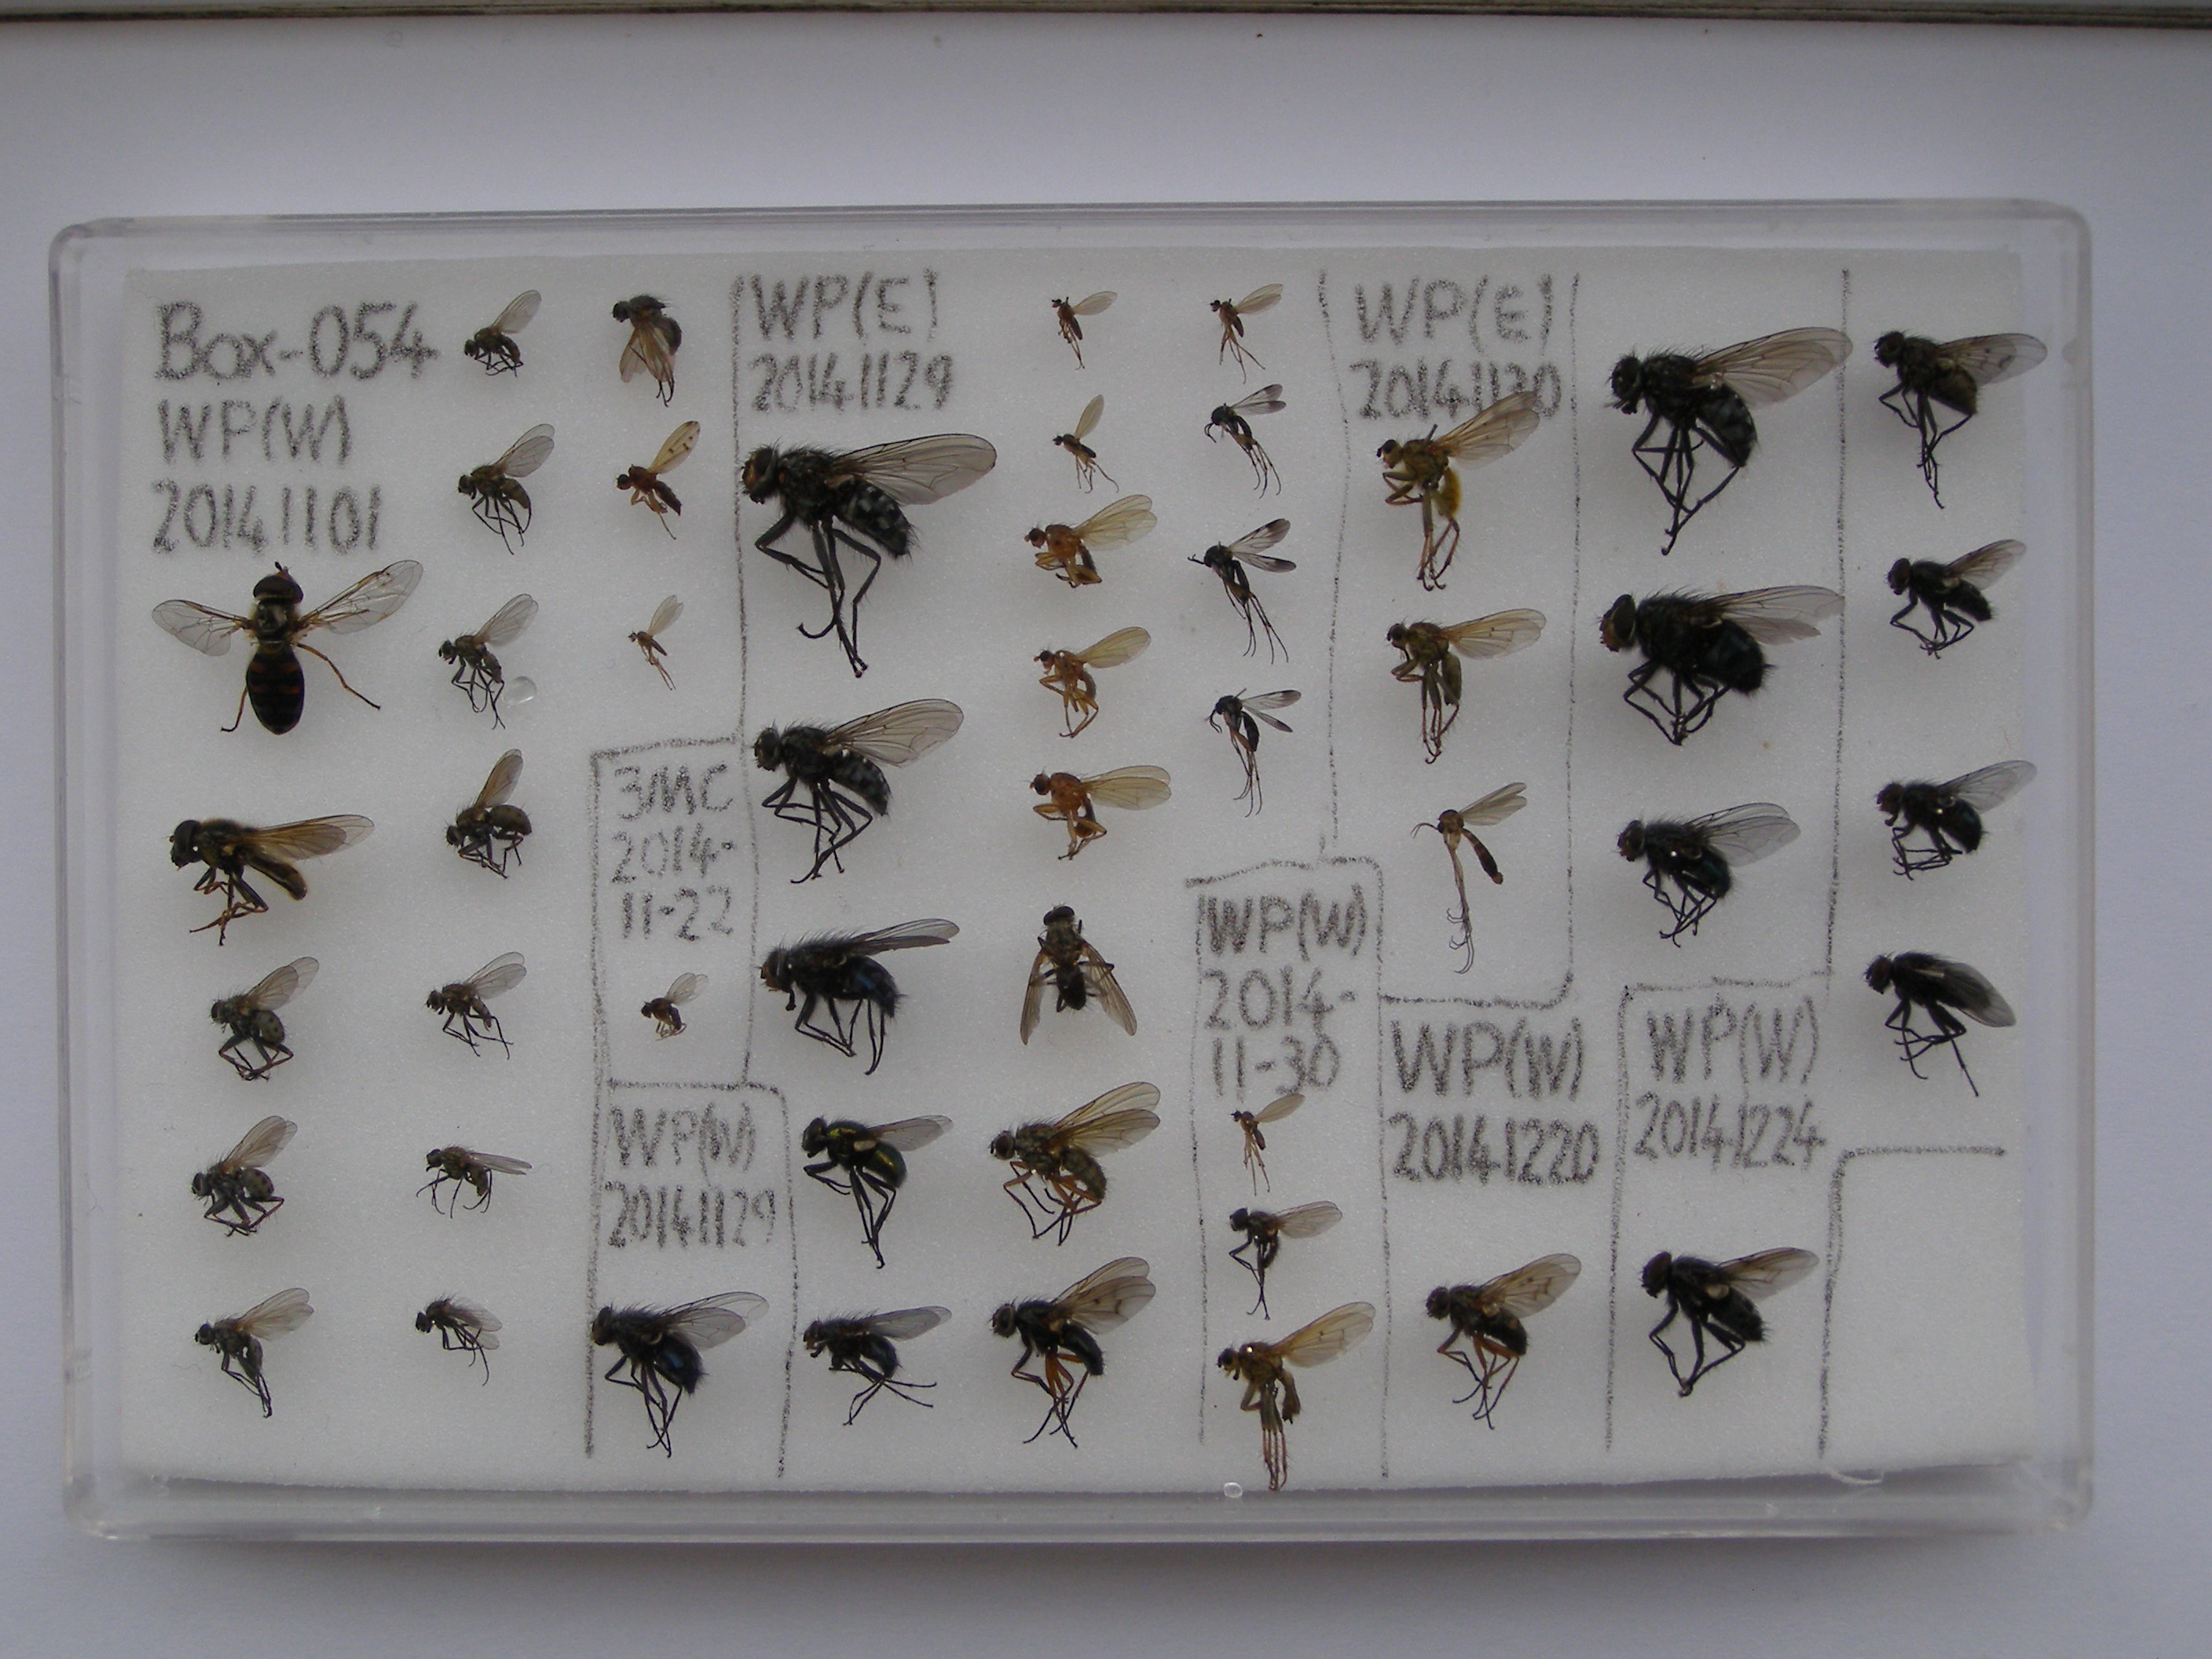 Box-054
WP(W)
20141101
3MC
2014-
11-22
WP(W)
20141129
WP(E)
20141129
WP(W)
2014-
11-30
WP(E)
20141130
WP(W)
20141220
WP(W)
20141224